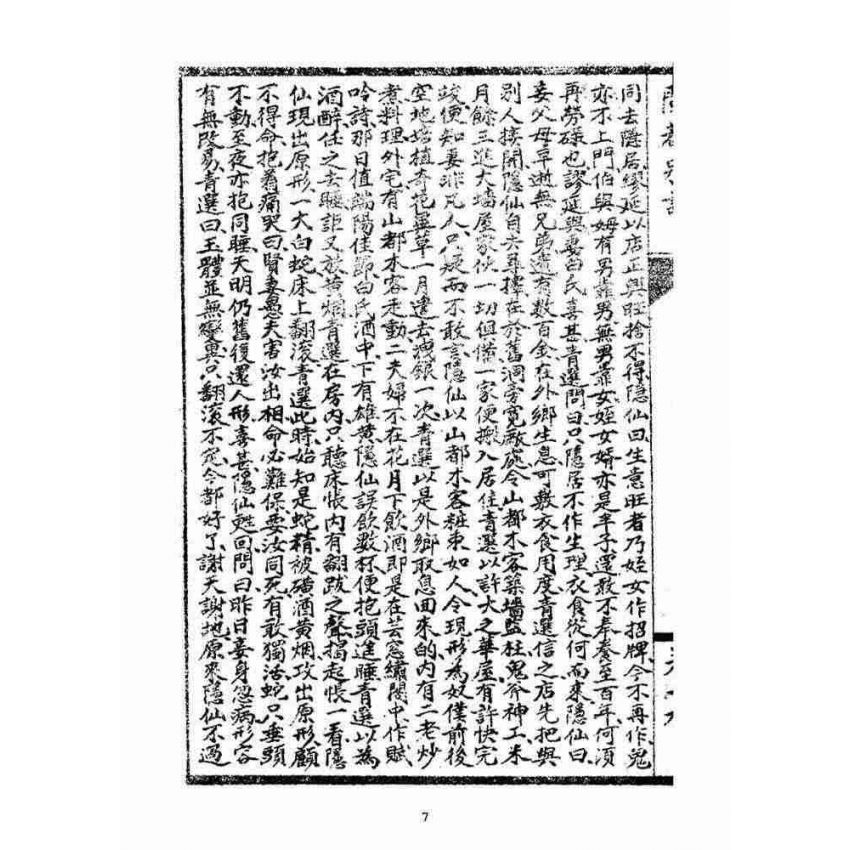 同去隱居繆延以店正興旺捨不得隱仙曰生意旺者乃姪女作招牌今不再作鬼
亦不上門伯與姆有男靠男無男靠女姪女婿亦是半子還敢不奉養至百年何須
再勞碌也謬延與妻白氏喜甚青選問曰只隱居不作生理衣食從何而來隱仙曰
妾父母早逝無兄弟遺有數百金在外鄉生息可敷衣食用度青選信之店先把與
別人接開隱仙自去尋擇在於舊洞旁寬敞處令山都木客築墻監柱鬼斧神工未
月餘三進大墻屋家伙一切俱備一家便搬入居住青選以許大之華屋有許快完
竣便知妻非凡人只疑而不敢言隱仙以山都木客粧束如人令現形為奴僕前後
空地培植奇葩異草一月遣去洩銀一次青選以是外鄉取息回來的內有二老炒
煮料理外宅有山都木客走動二夫婦不在花月下飲酒即是在芸窓繡閣中作賦
吟詩那日值端陽佳節白氏酒中下有雄黃隱仙誤飲數杯便抱頭進睡青選以為
酒醉任之去睡詎又放黃烟青選在房內只聽床帳內有翻跋之聲揭起帳一看隱
仙現出原形一大白蛇床上翻滾青選此時始知是蛇精被磺酒黃烟攻出原形顧
不得命抱着痛哭曰賢妻愚夫害汝出相命必難保要汝同死有敢獨活蛇只垂頭
不動至夜亦抱同睡天明仍舊復還人形喜甚隱仙甦回問曰昨日妾身忽病形容
有無改易青選曰玉體並無變異只翻滾不定今都好了謝天謝地原來隱仙不過
7